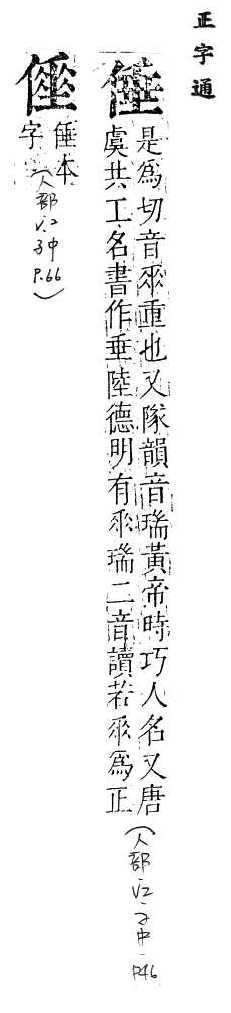 正字通
倕
是為切音垂重也又隊韻音瑞黃帝時巧人名又唐
虞共工名書作垂陸德明有垂瑞二音讀若垂為正
(人部·V2·子中·P46)
倕本
字
(人部
V.2
子中
P.66)